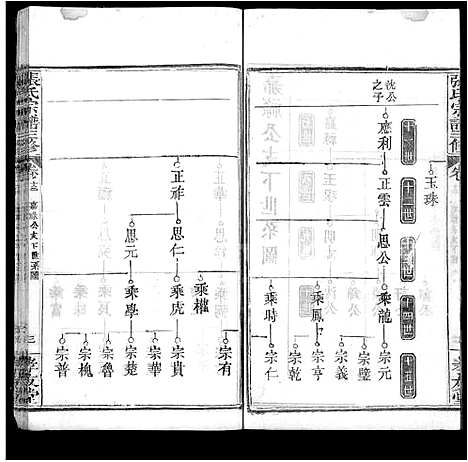 張氏宗譜三修
玉珠
十一世
十二世
十三世
十四世
十五世
沈公之子
應利
正雲
思公
乘龍
宗元
宗璧
宗義
乘鳳
宗亨
宗乾
乘時
宗仁
孝友堂
乘權
宗有
正祚
思仁
乘虎
宗貴
宗華
思元
乘學
宗楚
宗魯
宗槐
宗普
張氏宗譜三修
嘉祿公支下世系圖
三
孝友堂